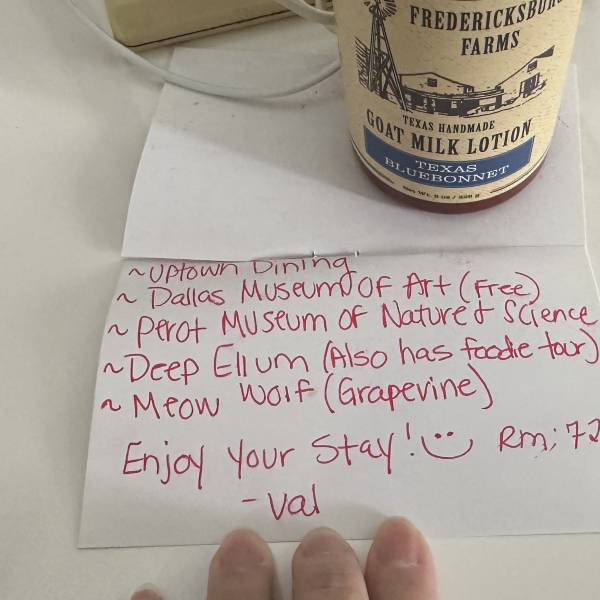 FREDERICKSBURG
FARMS
TEXAS HANDMADE
GOAT MILK LOTION
TEXAS
BLUEBONNET
~ Uptown Dining
~ Dallas Museum OF Art (Free)
~ Perot Museum OF Nature & Science
~ Deep Ellum (Also has foodie tour)
~ Meow Wolf (Grapevine)
Enjoy Your Stay! Rm; 72
- Val